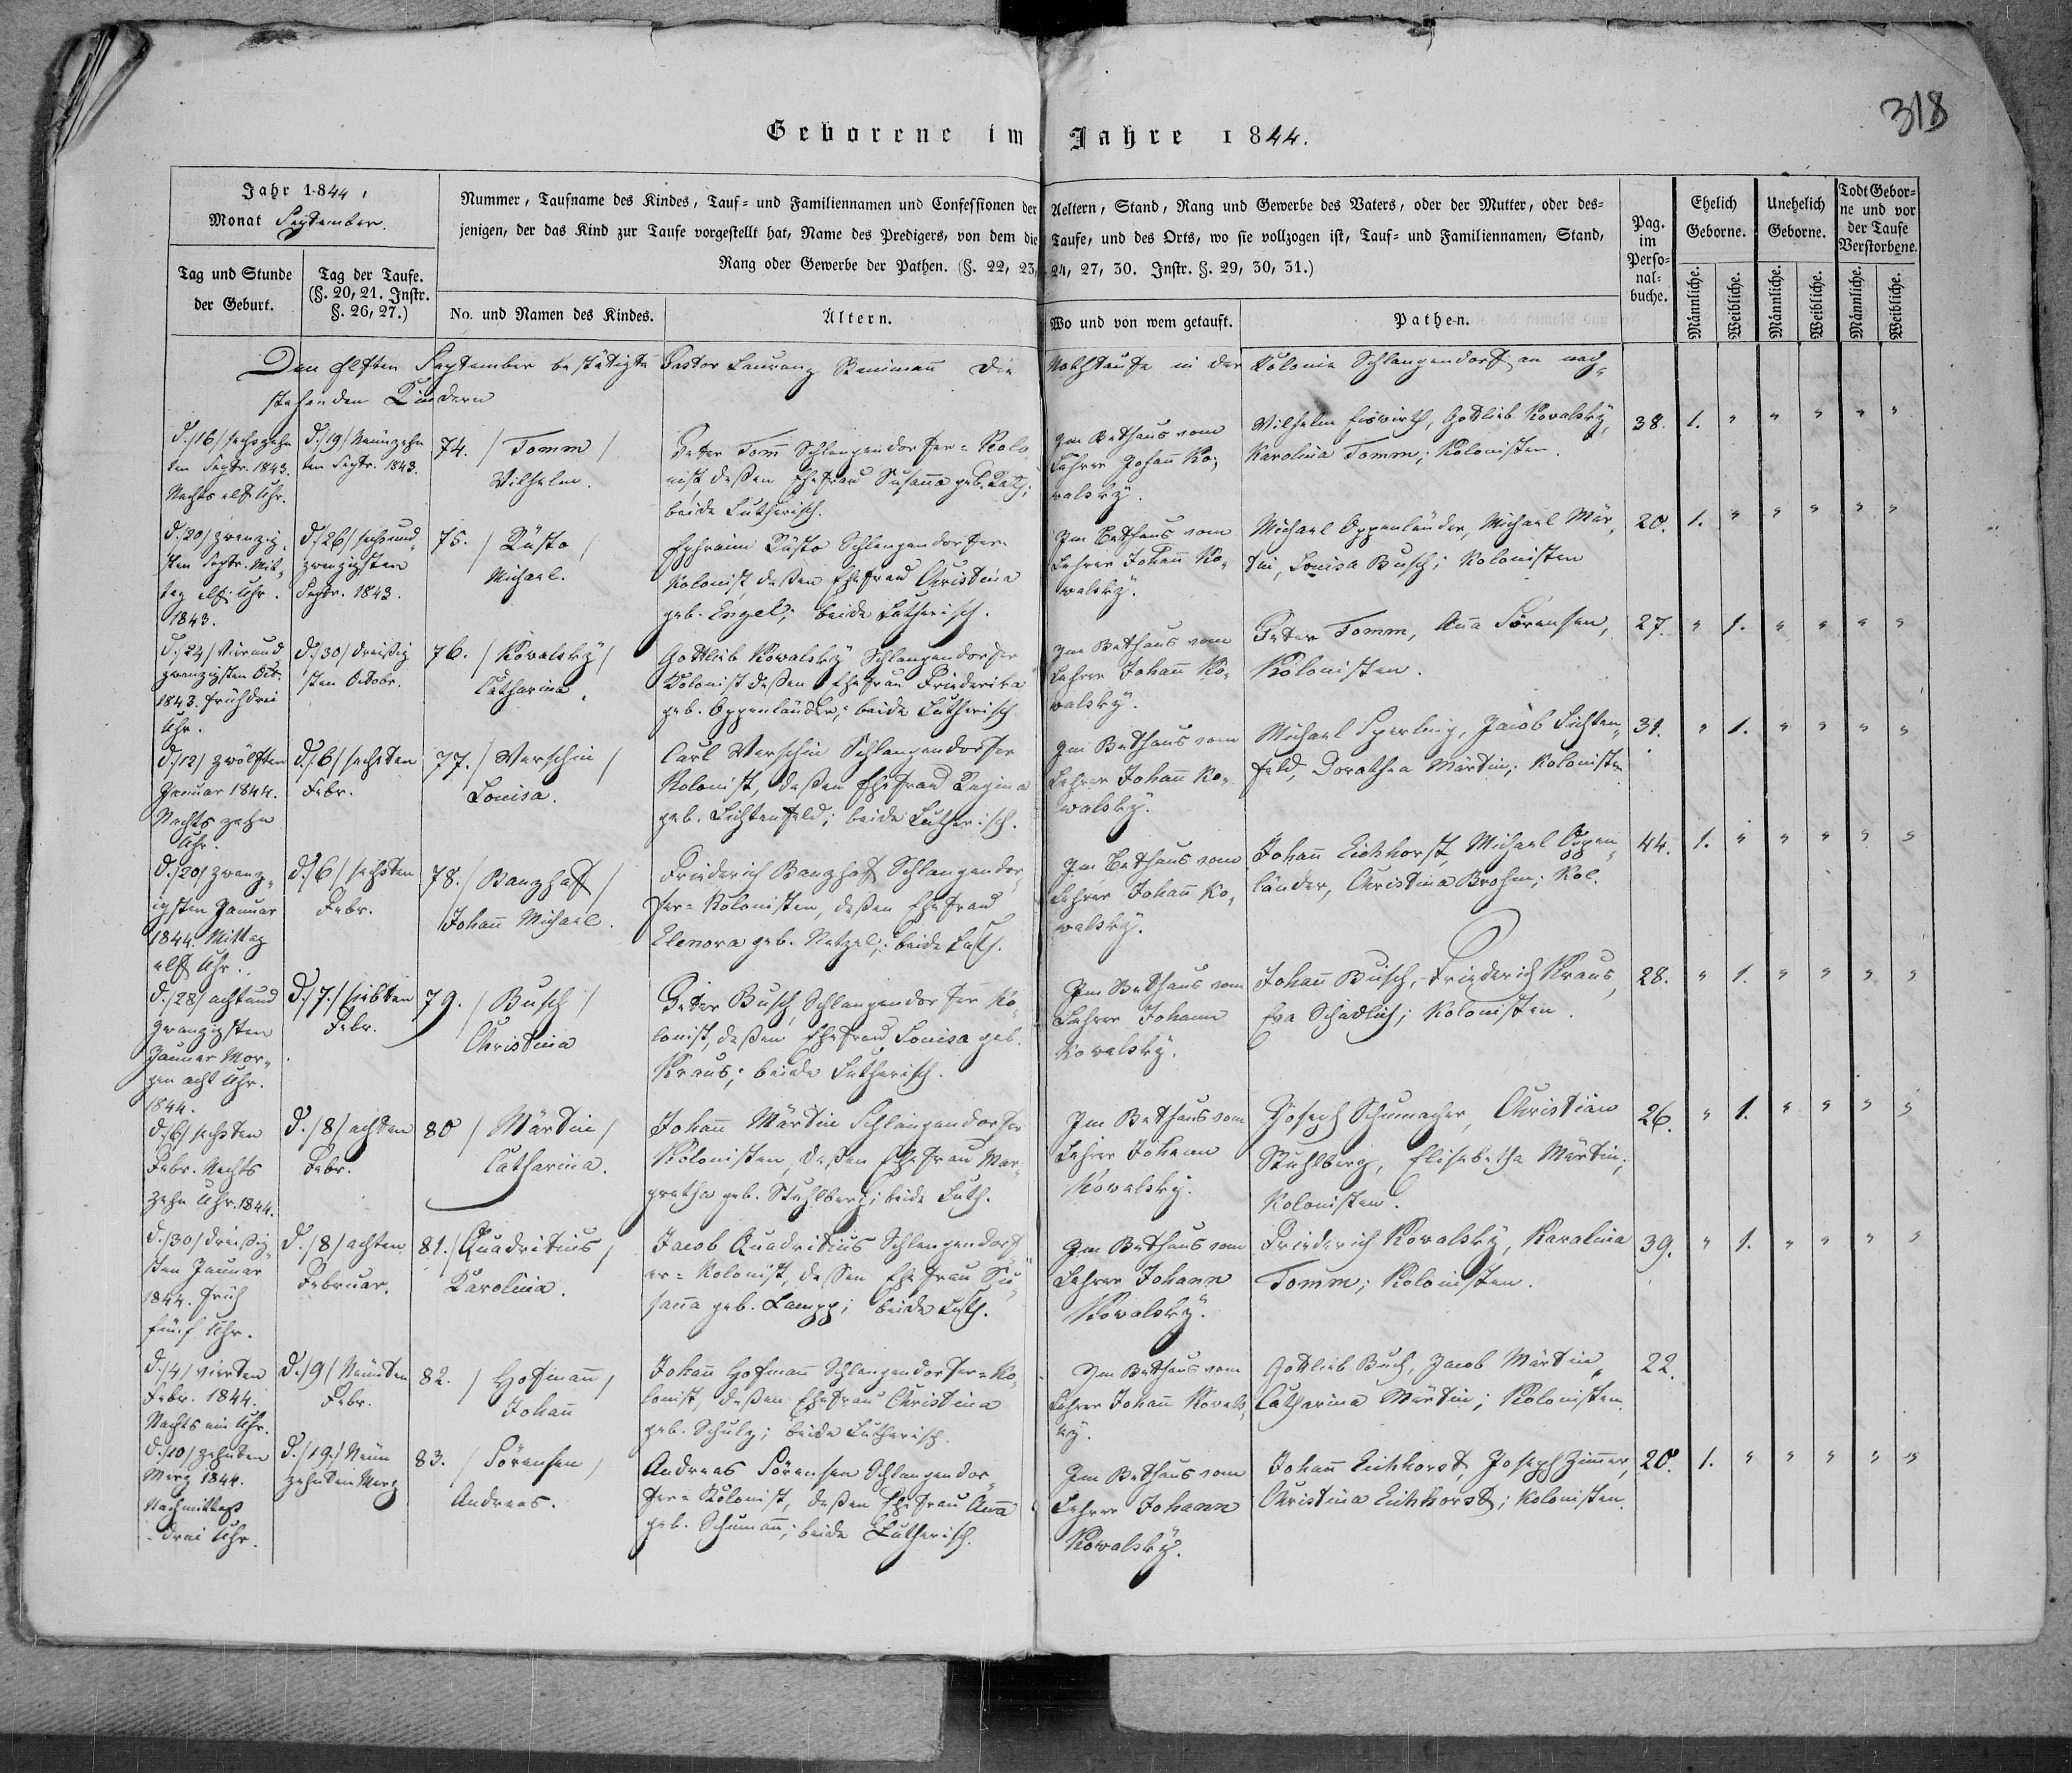 318
Geborene im Jahre 1844.
Jahr 1844,
Monat September.
Nummer, Taufname des Kindes, Tauf- und Familiennamen und Confessionen der Aeltern, Stand, Rang und Gewerbe des Vaters, oder der Mutter, oder des-
jenigen, der das Kind zur Taufe vorgestellt hat, Name des Predigers, von dem die Taufe, und des Orts, wo sie vollzogen ist, Tauf- und Familiennamen, Stand,
Rang oder Gewerbe der Pathen. (§. 22, 23, 24, 27, 30. Instr. §. 29, 30, 31.)
Pag.
im
Perso-
nal-
buche.
Ehelich
Geborne.
Unehelich
Geborne.
Todt Gebor-
ne und vor
der Taufe
Verstorbene.
Tag und Stunde
der Geburt.
Tag der Taufe.
(§. 20, 21. Instr.
§. 26, 27.)
No. und Namen des Kindes.
Ältern.
Wo und von wem getauft.
Pathen.
Männliche.
Weibliche.
Männliche.
Weibliche.
Männliche.
Weibliche.
Den elften September bestätigte Pastor Laurenz die Nothtaufe in der Kolonie Schlangendorf an nach-
stehenden Kindern
d./16/ sechszehn
ten Septr. 1843.
Nachts elf Uhr.
d./19/ Neunzehn
ten Septr. 1843.
74. / Tomm /
Wilhelm.
Peter Tom̄ Schlangendorfer-Kolo-
nist deßen Ehefrau Susan̄a geb.
beide Lutherisch.
Im Bethaus vom
Lehrer Johan̄ Ko-
walsky.
Wilhelm Eiswirth, Gottlieb Kowalsky,
Karolina Tomm; Kolonisten.
38. 1. " " " " "
d./20/ zwanzig-
sten Septr. Mit-
tag elf Uhr.
1843.
d./26/ sechsund
zwanzigsten
Septr. 1843.
75. / Küsto /
Michael.
Ephraim Küsto Schlangendorfer
Kolonist, deßen Ehefrau Christina
geb. Engel; beide Lutherisch.
Im Bethaus vom
Lehrer Johan̄ Ko-
walsky.
Michael Oppenländer, Michael Mär-
tin, Louisa Busch; Kolonisten
20. 1. " " " " "
d./24/ Vierund
zwanzigsten Oct.
1843. früh drei
Uhr.
d./30/ dreißig
sten Octobr.
76. / Kowalsky /
Catharina.
Gottlieb Kowalsky Schlangendorfer
Kolonist deßen Ehefrau Friederika
geb. Oppenländer; beide Lutherisch
Im Bethaus vom
Lehrer Johan̄ Ko-
walsky.
Peter Tomm, An̄a Sörensen,
Kolonisten.
27. " 1. " " " "
d./12/ zwölften
Januar 1844.
Nachts zehn
Uhr.
d./6/ sechsten
Febr.
77. / Werschin /
Louisa.
Carl Werschin Schlangendorfer
Kolonist, deßen Ehefrau Regina
geb. Lichtenfeld; beide Lutherisch.
Im Bethaus vom
Lehrer Johan̄ Ko-
walsky.
Michael Sperling, Jacob Lichten-
feld, Dorathea Märtin; Kolonisten
31. " 1. " " " "
d./20/ zwanz-
igsten Januar
1844. Mittag
elf Uhr.
d./6/ sechsten
Febr.
78. / Banzhaff /
Johan̄ Michael.
Friederich Banzhaff Schlangendor-
fer-Kolonisten, deßen Ehefrau
Elenora geb. Natzel; beide Luth.
Im Bethaus vom
Lehrer Johan̄ Ko-
walsky.
Johan̄ Eichhorst, Michael Oppen-
länder, Christina Brohm; Kol.
44. 1. " " " " "
d./28/ achtund
zwanzigsten
Januar Mor-
gen acht Uhr.
1844.
d./7./ siebten
Febr.
79. / Busch /
Christina
Peter Busch, Schlangendorfer Ko-
lonist, deßen Ehefrau Louisa geb.
Kraus; beide Lutherisch.
Im Bethaus vom
Lehrer Johann
Kowalsky.
Johan̄ Busch, Friederich Kraus,
Eva Schädlich; Kolonisten.
28. " 1. " " " "
d./6/ sechsten
Febr. Nachts
zehn Uhr. 1844.
d./8/ achten
Febr.
80 / Märtin /
Catharina.
Johan̄ Märtin Schlangendorfer
Kolonisten, deßen Ehefrau Mar-
gretha geb. Stuhlberg; beide Luth.
Im Bethaus vom
Lehrer Johann
Kowalsky.
Joseph Schumacher, Christian
Stuhlberg, Elisabetha Märtin;
Kolonisten.
26. " 1. " " " "
d./30/ dreißig-
sten Januar
1844. früh
fünf Uhr.
d./8/ achten
Februar.
81. / Quadritius /
Karolina.
Jacob Quadritius Schlangendorf-
er-Kolonist, dessen Ehefrau Su-
san̄a geb. Lampp; beide Luth.
Im Bethaus vom
Lehrer Johann
Kowalsky.
Friederich Kowalsky, Karalina
Tomm; Kolonisten.
39. " 1. " " " "
d./4/ vierten
Febr. 1844.
Nachts ein Uhr.
d./9/ Neunten
Febr.
82. / Hofman̄ /
Johan̄
Johan̄ Hofman̄ Schlangendorfer-Ko-
lonist, deßen Ehefrau Christina
geb. Schulz; beide Lutherisch.
Im Bethaus vom
Lehrer Johan̄ Kowals-
ky.
Gottlieb Buch, Jacob Märtin,
Catharina Märtin; Kolonisten.
22.
d./10/ zehnten
Merz 1844.
Nachmittags
drei Uhr.
d./19./ Neun
zehnten Merz
83. / Sörensen /
Andreas.
Andreas Sörensen Schlangendor-
fer-Kolonist, deßen Ehefrau An̄a
geb. Schuman̄; beide Lutherisch.
Im Bethaus vom
Lehrer Johann
Kowalsky.
Johan̄ Eichhorst, Joseph Zim̄er,
Christina Eichhorst; Kolonisten.
20. 1. " " " " "